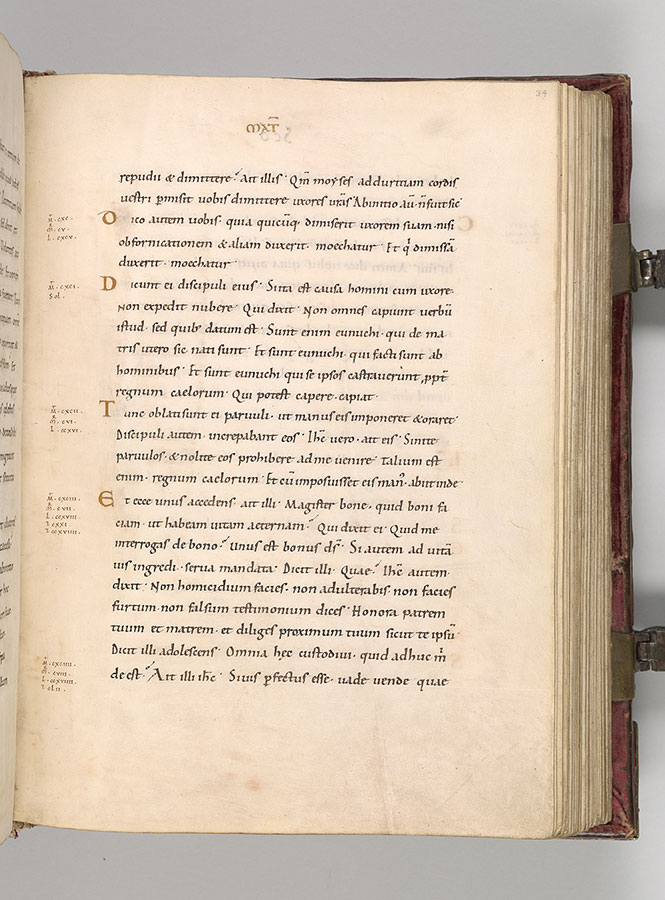 34
MAT̄
repudii & dimittere؛ Ait illis· Qm̄ moyses ad duritiam cordis
vestri p̄misit vobis dimittere vxores vr̄as· Ab initio aū· n̄ fuit sic
Dico autem vobis· quia quicūq; dimiserit vxorem suam· nisi
ob fornicationem & aliam duxerit· moechatur· Et q̇ dimissā
duxerit· moechatur·
Dicunt ei discipuli eius· Si ita est causa homini cum vxore·
Non expedit nubere· Qui dixit· Non omnes capiunt verbū
istud· sed quib' datum est· Sunt enim eunuchi· qui de ma
tris utero sic nati sunt· Et sunt eunuchi· qui facti sunt ab
hominibus· Et sunt eunuchi qui se ipsos castraverunt ppt̄
regnum caelorum· Qui potest capere· capiat·
Tunc oblati sunt ei parvuli· ut manus eis imponeret & oraret·
Discipuli autem· increpabant eos· Ih̄c vero· ait eis· Sinite
parvulos· & nolite eos prohibere ad me venire· Talium est
enim· regnum caelorum· Et cū imposuisset eis man'· abiit inde
Et ecce unus accedens· ait illi· Magister bone· quid boni fa
ciam· ut habeam vitam aeternam؛ Qui dixit ei· Quid me
interrogas de bono؛ Unus est bonus d̄s· Si autem ad vitā
vis ingredi· serva mandata· Dicit illi· Quae؛ Ih̄c autem·
dixit· Non homicidium facies· non adulterabis· non facies
furtum· non falsum testimonium dices· Honora patrem
tuum et matrem· et diliges proximum tuum sicut te ipsū·
Dicit illi adolescens· Omnia hęc custodivi· quid adhuc m̄
deest؛ Ait illi ih̄c· Si vis p̄fectus esse· vade vende quae